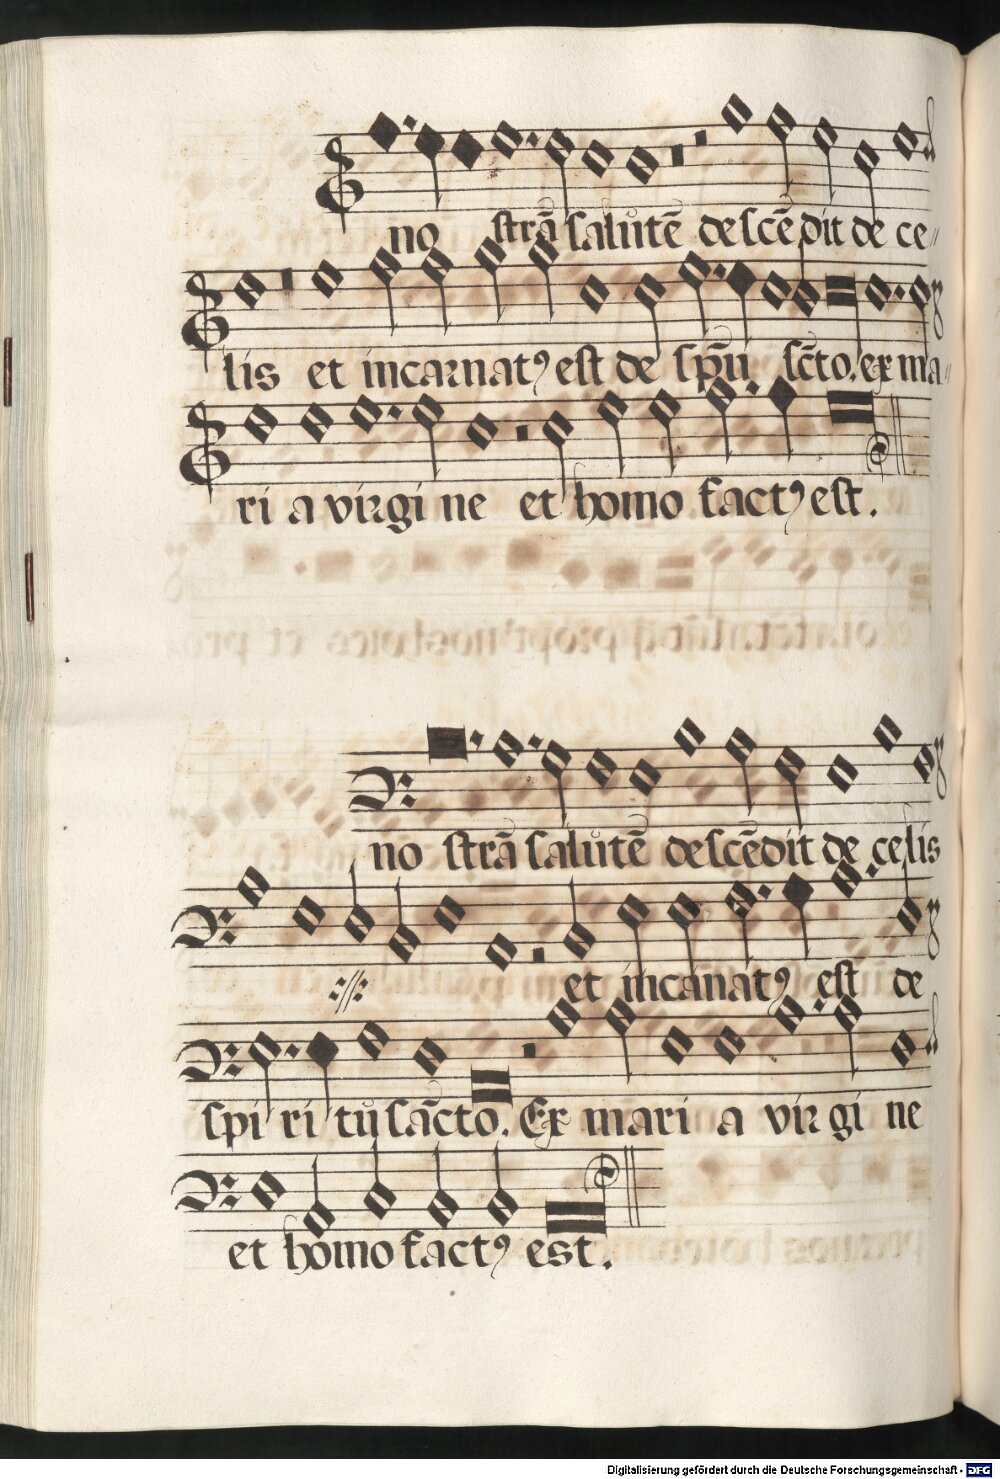 no strā salutē descēdit de ce
lis et incarnatꝰ est de spū scto. ex ma
ri a virgi ne et homo factꝰ est.
no strā salutē descēdit de celis
et incanatꝰ est de
spi ri tu sācto. Ex mari a virgi ne
et homo factꝰ est.
Digitalisierung gefördert durch die Deutsche Forschungsgemeinschaft - DFG